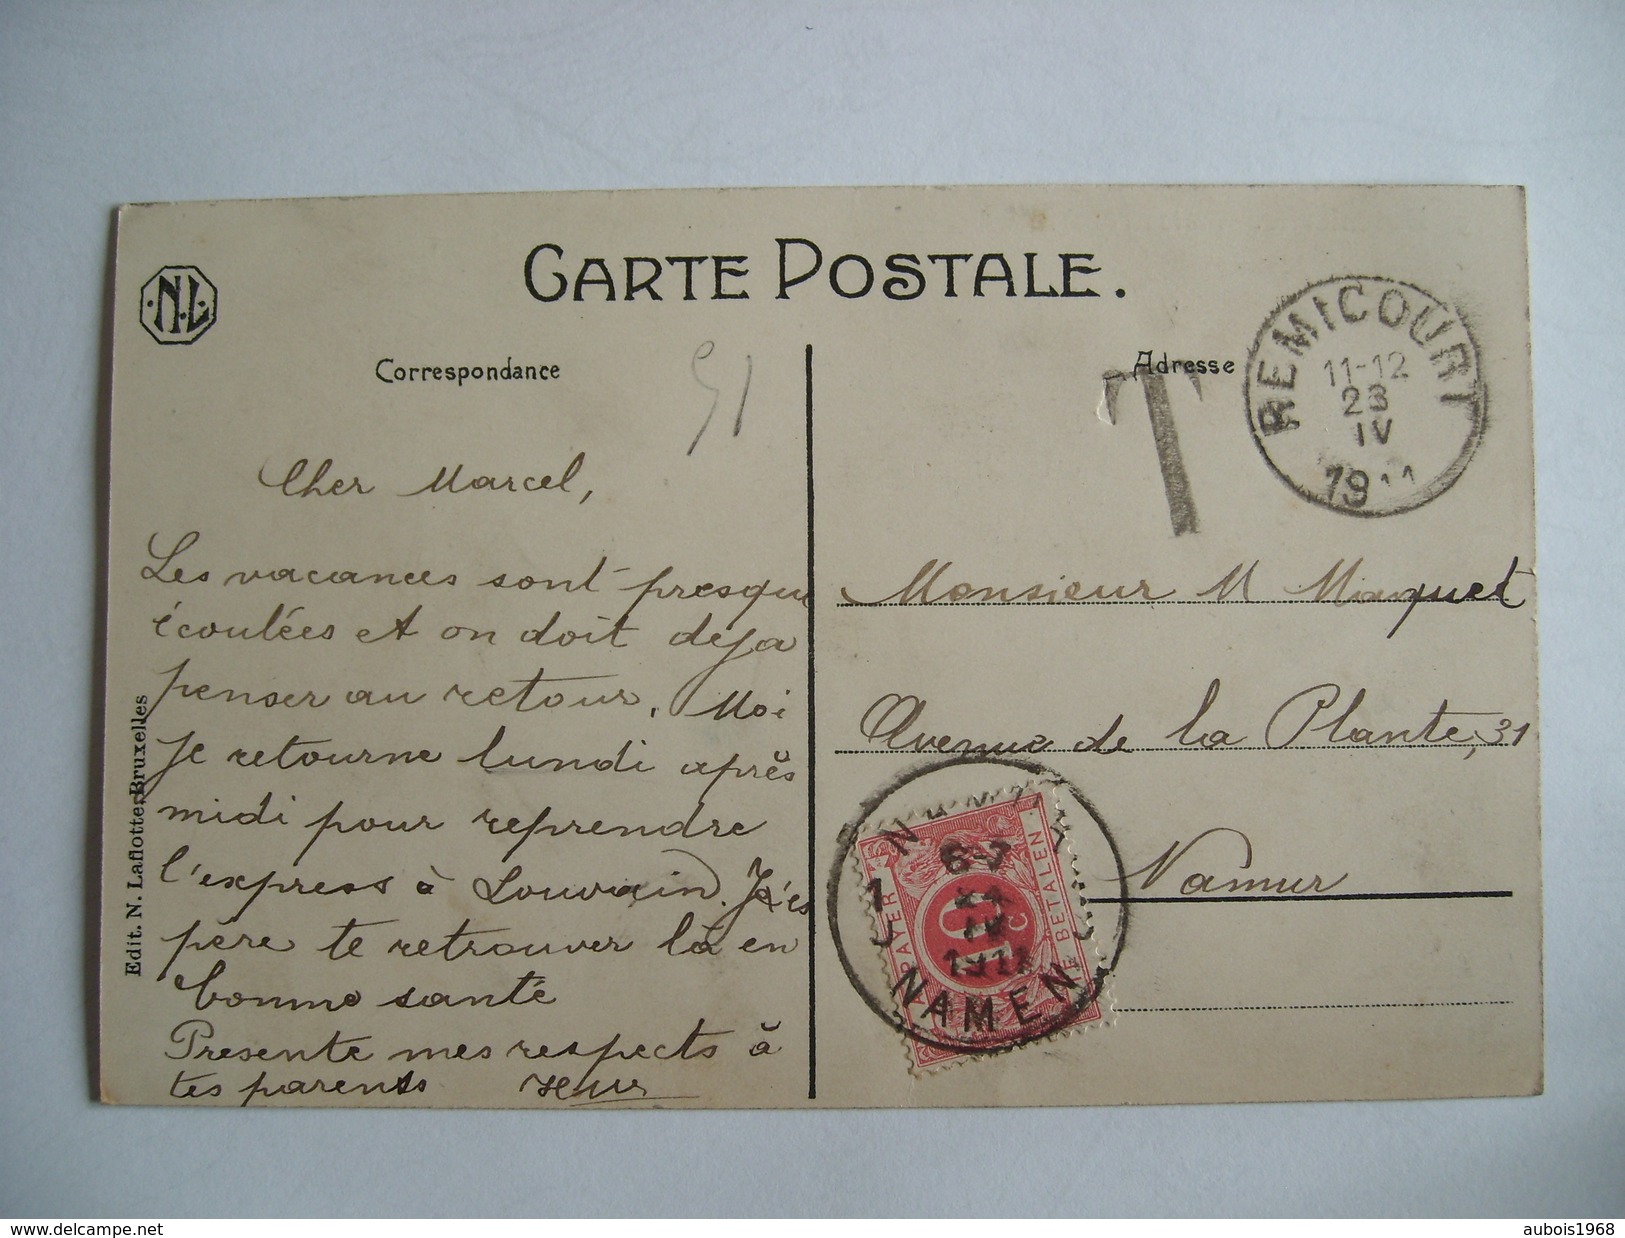 CARTE POSTALE.
N.L.
Correspondance
Adresse
T
REMICOURT
11-12
23
IV
1911
51
Cher Marcel,
Les vacances sont presque
écoulées et on doit deja
penser au retour. Moi
je retourne lundi après
midi pour reprendre
l'express à Louvain. J'es
père te retrouver là en
bonne santé
Presente mes respects à
tes parents
Monsieur M Marquet
Avenue de la Plante, 31
Namur
1
6-7
24
IV
1911
NAMEN
A PAYER
10 c
TE BETALEN
Edit. N. Laflotte, Bruxelles
aubois1968